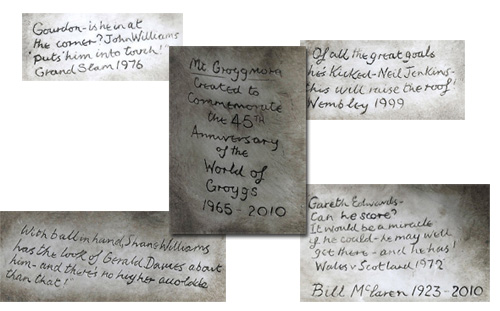 Gourdon-is he in at
the corner? John Williams
'puts' him into touch!
Grand Slam 1976
Of all the great goals
he's Kicked-Neil Jenkins-
this will raise the roof!
Wembley 1999
Mt Groggmora
Created to
Commemorate
the 45TH
Anniversary
of the
World of
Groggs
1965-2010
With ball in hand, Shane Williams
has the look of Gerald Davies about
him-and there's no higher accolade
than that!
Gareth Edwards-
Can he score?
It would be a miracle
if he could-he may well
get there-and he has!
Wales v Scotland 1972
Bill McLaren 1923-2010